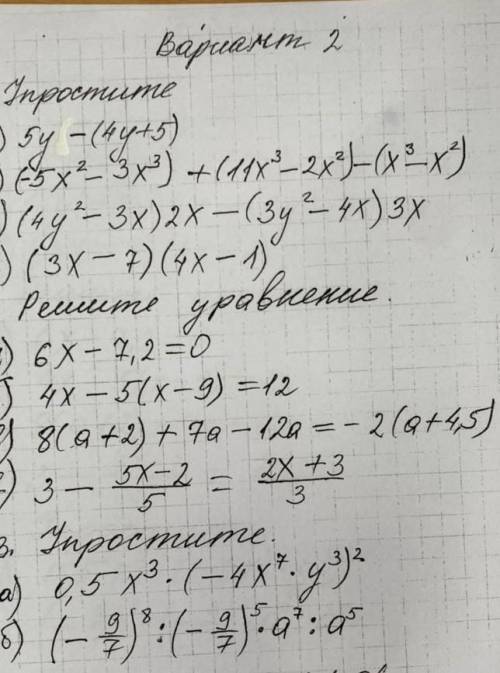 Вариант 2
Упростите
) 5y -(4y+5)
) (-5x² - 3x³) + (11x³ - 2x²) - (x³ - x²)
) (4y² - 3x) 2x - (3y² - 4x) 3x
) (3x - 7)(4x - 1)
Решите уравнение.
) 6x - 7,2 = 0
) 4x - 5(x - 9) = 12
) 8(a + 2) + 7a - 12a = - 2(a + 4,5)
) 3 - (5x - 2)/5 = (2x + 3)/3
3. Упростите.
а) 0,5 x³ · (- 4x⁷ · y³)²
б) (- 9/7)⁸ : (- 9/7)⁵ · a⁷ : a⁵